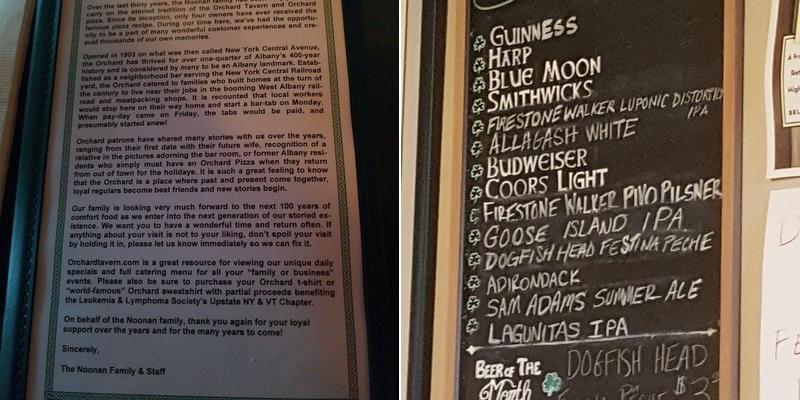 Over the last thirty years, the Noonan family has
carry on the storied tradition of the Orchard Tavern and Orchard
pizza. Since its inception, only four owners have ever received the
famous pizza recipe. During our time here, we've had the opportu-
nity to be a part of many wonderful customer experiences and cre-
ated thousands of our own memories.
Opened in 1903 on what was then called New York Central Avenue,
the Orchard has thrived for over one-quarter of Albany's 400-year
history and is considered by many to be an Albany landmark. Estab-
lished as a neighborhood bar serving the New York Central Railroad
yard, the Orchard catered to families who built homes at the turn of
the century to live near their jobs in the booming West Albany rail-
road and meatpacking shops. It is recounted that local workers
would stop here on their way home and start a bar-tab on Monday.
When pay-day came on Friday, the tabs would be paid, and
presumably started anew!
Orchard patrons have shared many stories with us over the years,
ranging from their first date with their future wife, recognition of a
relative in the pictures adorning the bar room, or former Albany resi-
dents who simply must have an Orchard Pizza when they return
from out of town for the holidays. It is such a great feeling to know
that the Orchard is a place where past and present come together,
loyal regulars become best friends and new stories begin.
Our family is looking very much forward to the next 100 years of
comfort food as we enter into the next generation of our storied ex-
istence. We want you to have a wonderful time and return often. If
anything about your visit is not to your liking, don't spoil your visit
by holding it in, please let us know immediately so we can fix it.
Orchardtavern.com is a great resource for viewing our unique daily
specials and full catering menu for all your "family or business"
events. Please also be sure to purchase your Orchard t-shirt or
"world-famous" Orchard sweatshirt with partial proceeds benefiting
the Leukemia & Lymphoma Society's Upstate NY & VT Chapter.
On behalf of the Noonan family, thank you again for your loyal
support over the years and for the many years to come!
Sincerely,
The Noonan Family & Staff
GUINNESS
HARP
BLUE MOON
SMITHWICKS
FIRESTONE WALKER LUPONIC DISTORTION
IPA
ALLAGASH WHITE
BUDWEISER
COORS LIGHT
FIRESTONE WALKER PIVO PILSNER
GOOSE ISLAND IPA
DOGFISH HEAD FESTINA PECHE
ADIRONDACK
SAM ADAMS SUMMER ALE
LAGUNITAS IPA
BEER OF THE
Month
DOGFISH HEAD